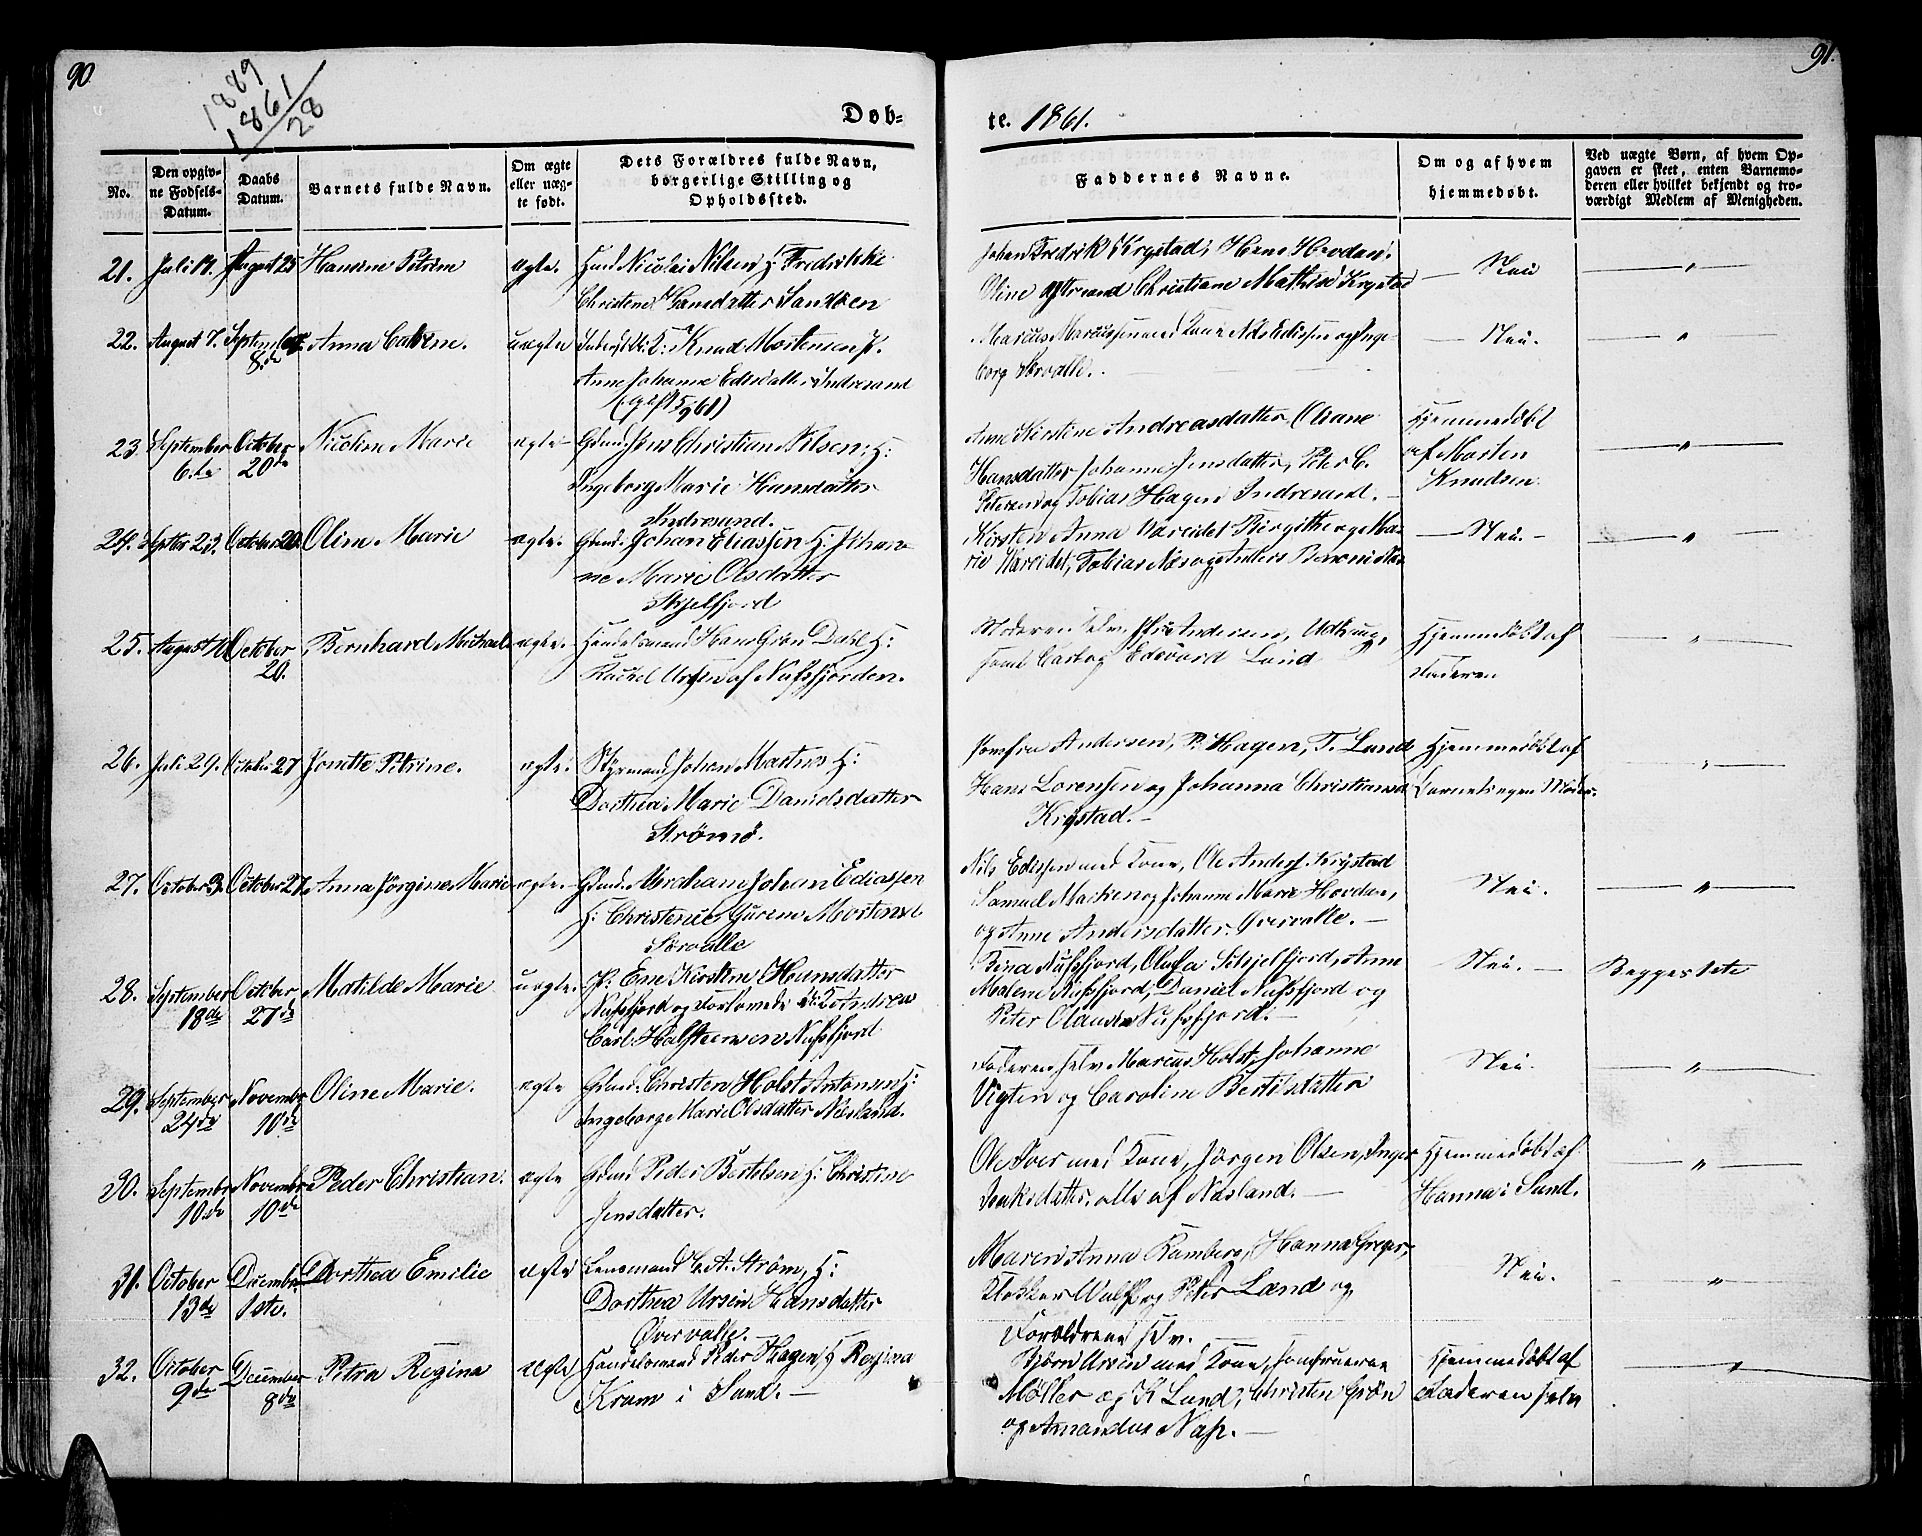 90.
91.
1889
1861
28
Døb-
te. 1861.
No.
Den opgiv-
ne Fødsels-
Datum.
Daabs
Datum.
Barnets fulde Navn.
Om ægte
eller uæg-
te født.
Dets Forældres fulde Navn,
borgerlige Stilling og
Opholdssted.
Faddernes Navne.
Om og af hvem
hjemmedøbt.
Ved uægte Børn, af hvem Op-
gaven er skeet, enten Barnemo-
deren eller hvilket bekjendt og tro-
værdigt Medlem af Menigheden.
21. Juli 19. August 25 Hansine Petrine ægte. Nicolai Nilsen H: Fredrikke
Christine Hansdatter Sandøen
Johan Fredrik Krystad, Hans Hovdan.
Oline Christiane Mathisd Krystad
Nei "
22. August 7. September
8.de
Anna Catrine. uægte Knud Mortensen P.
Anne Johanne Edisdatter Indresand
(gift 5/9 61)
Marcus Marcussen med Kone Nils Edissen og Inge-
borg Sørvalle.
Nei. "
23. September
6.te
October
20de
Nicoline Marie ægte Gdmd. Jens Christian Nilsen, H:
Ingeborg Marie Hansdatter
Indresand.
Anne Kirstine Andreasdatter, Oliane
Hansdatter Johanne Jensdatter, Peter C.
Petersen og Tobias Hagen Indresand.
Hjemmedøbt
af Morten
Knudsen
"
24. Septbr 23. October 20. Oline Marie ægte. Gdmd. Johan Eliassen H: Johan-
ne Marie Olsdatter
Skjelfjord
Kirsten Anna Vareidet Birgithe og Ma-
rie Vareidet, Tobias Næs og Anders
Nei. "
25. August 10 October
20.
Bernhard Michael ægte. Handelsmand Hans Grøn Dahl H:
Rachel Ursin af Nufsfjorden.
Moderen selv, Andersen,
samt og Edevard Lund
Hjemmedøbt af
Faderen
"
26. Juli 29. October 27 Jonette Petrine. ægte. Styrmand Johan Martnes H:
Dorthea Marie Danielsdatter
Strømø.
Jomfru Andersen, P. Hagen, T. Lund
Hans Lorensen og Johanna Christiansd
Krystad.
Hjemmedøbt af
Barnets egen Moder.
"
27. October 3. October 27. Anna Jørgine Marie ægte Gdmd. Abraham Johan Ediassen
H: Christence Gurine Mortensd
Sørvalle
Nils Edissen med Kone, Ole Anders. Krystad
Samuel og Johanne Marie Hovdan,
og Anne Andersdatter Overvalle.
Nei. "
28. September
18de
October
27de
Matilde Marie uægte. P: Ene Kirstine Hansdatter
Nufsfjord og Forlovede Andrea
Carl Halsteensen Nufsfjord
Bina Nufsfjord, Olufa Skjelfjord, Anne
Malene Nufsfjord, Daniel Nufsfjord og
Peter Olausen Nufsfjord.
Nei. Begges 1ste
29. September
24de
November
10de
Oline Marie. ægte Gdmd. Christen Holst Antonsen H:
Ingeborg Marie Olsdatter Næsland.
Faderen selv Marcus Holst, Johanne
Vigten og Caroline Bertilsdatter
Nei. "
30. September
10de
November
10de
Peder Christian. ægte Gdmd Peder Bertelsen H: Christine
Jensdatter.
Ole Iver med Kone, Jørgen Olsen, Inger
Isaksdatter, alle af Næsland.
Hjemmedøbt af
Hanna i Sund.
"
31. October
13de
December
1ste.
Dorthea Emilie ægte Lensmand C. A. Strøm, H:
Dorthea Ursin Hansdatter
Øvervalle.
Maren Anna Ramberg, Hanna Greger,
Klokker Wulff og Peter Lund og
Forældrene selv.
Nei. "
32. October
9de
December
8de
Petra Regina ægte Handelsmand Peder Hagen H Regina
Kram i Sund.
Bjørn Ursin med Kone, Jomfruerne
Møller og K Lund, Christen Grøn
og Amandus Nap.
Hjemmedøbt af
Faderen selv
"